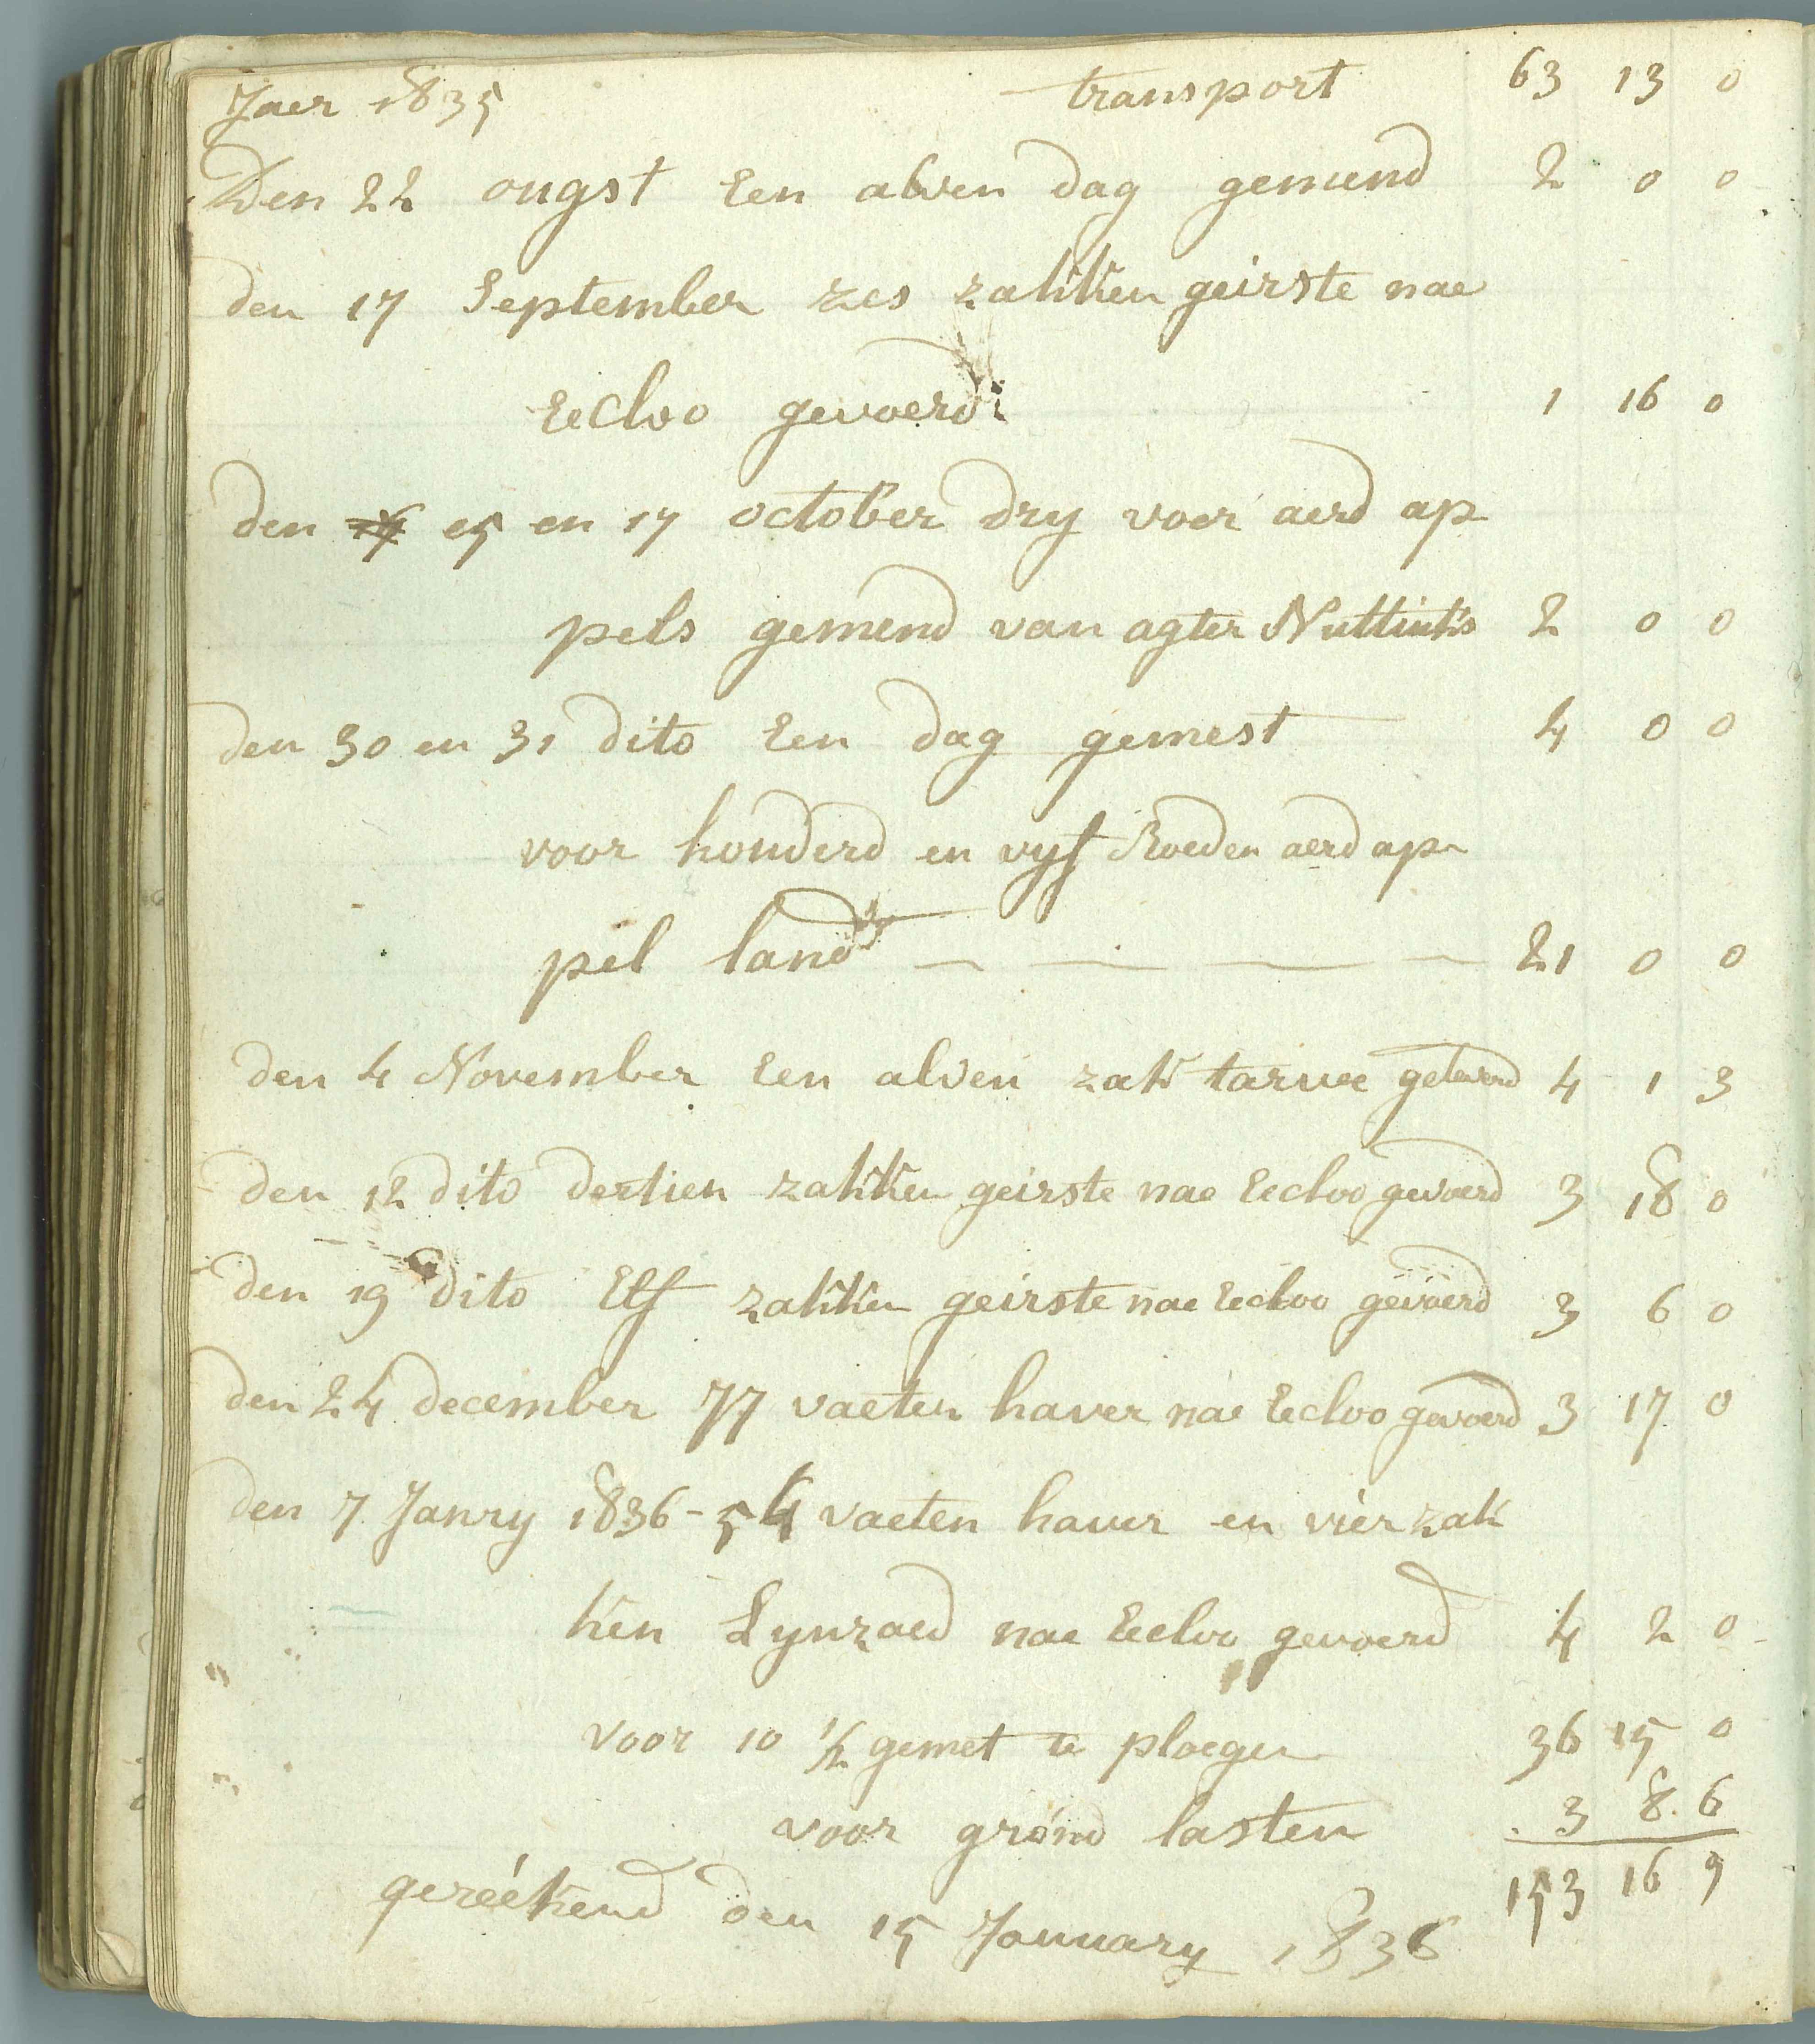 Jaer 1835 transport 63 13 0
Den 22 ougst Een alven dag gemend 2 0 0
den 17 September zes zakken geirste nae
Eecloo gevoerd 1 16 0
den 15 en 17 october dry voer aerd ap
pels gemend van agter Nuttinks 2 0 0
den 30 en 31 dito Een dag gemest 4 0 0
voor honderd en vyf Roeden aerd ap
pel land — — — — 21 0 0
den 4 November Een alven zak tarwe geleverd 4 1 3
den 12 dito dertien zakken geirste nae Eecloo gevoerd 3 18 0
den 19 dito Elf zakken geirste nae Eecloo gevoerd 3 6 0
den 24 december 77 vaeten haver nae Eecloo gevoerd 3 17 0
den 7 Janry 1836 - 54 vaeten haver en vier zak
ken Lynzaed nae Eecloo gevoerd 4 2 0
voor 10 1/2 gemet te ploegen 36 15 0
voor grond lasten 3 8. 6
153 16 9
gereékend den 15 January 1836